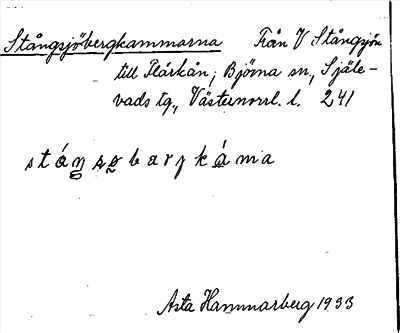 Stångsjöbergkammarna Från V Stångsjön
till Flärkån, Björna sn, Själe-
vads tg., Västernorrl. l. 241
Asta Hammarberg 1933